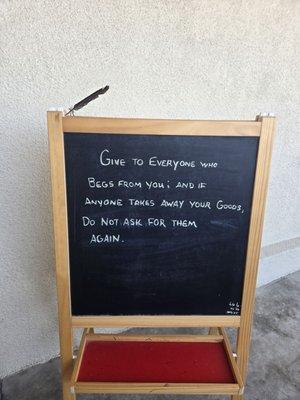 Give to Everyone who
Begs from you; and if
anyone takes away your Goods,
Do Not Ask for them
again.